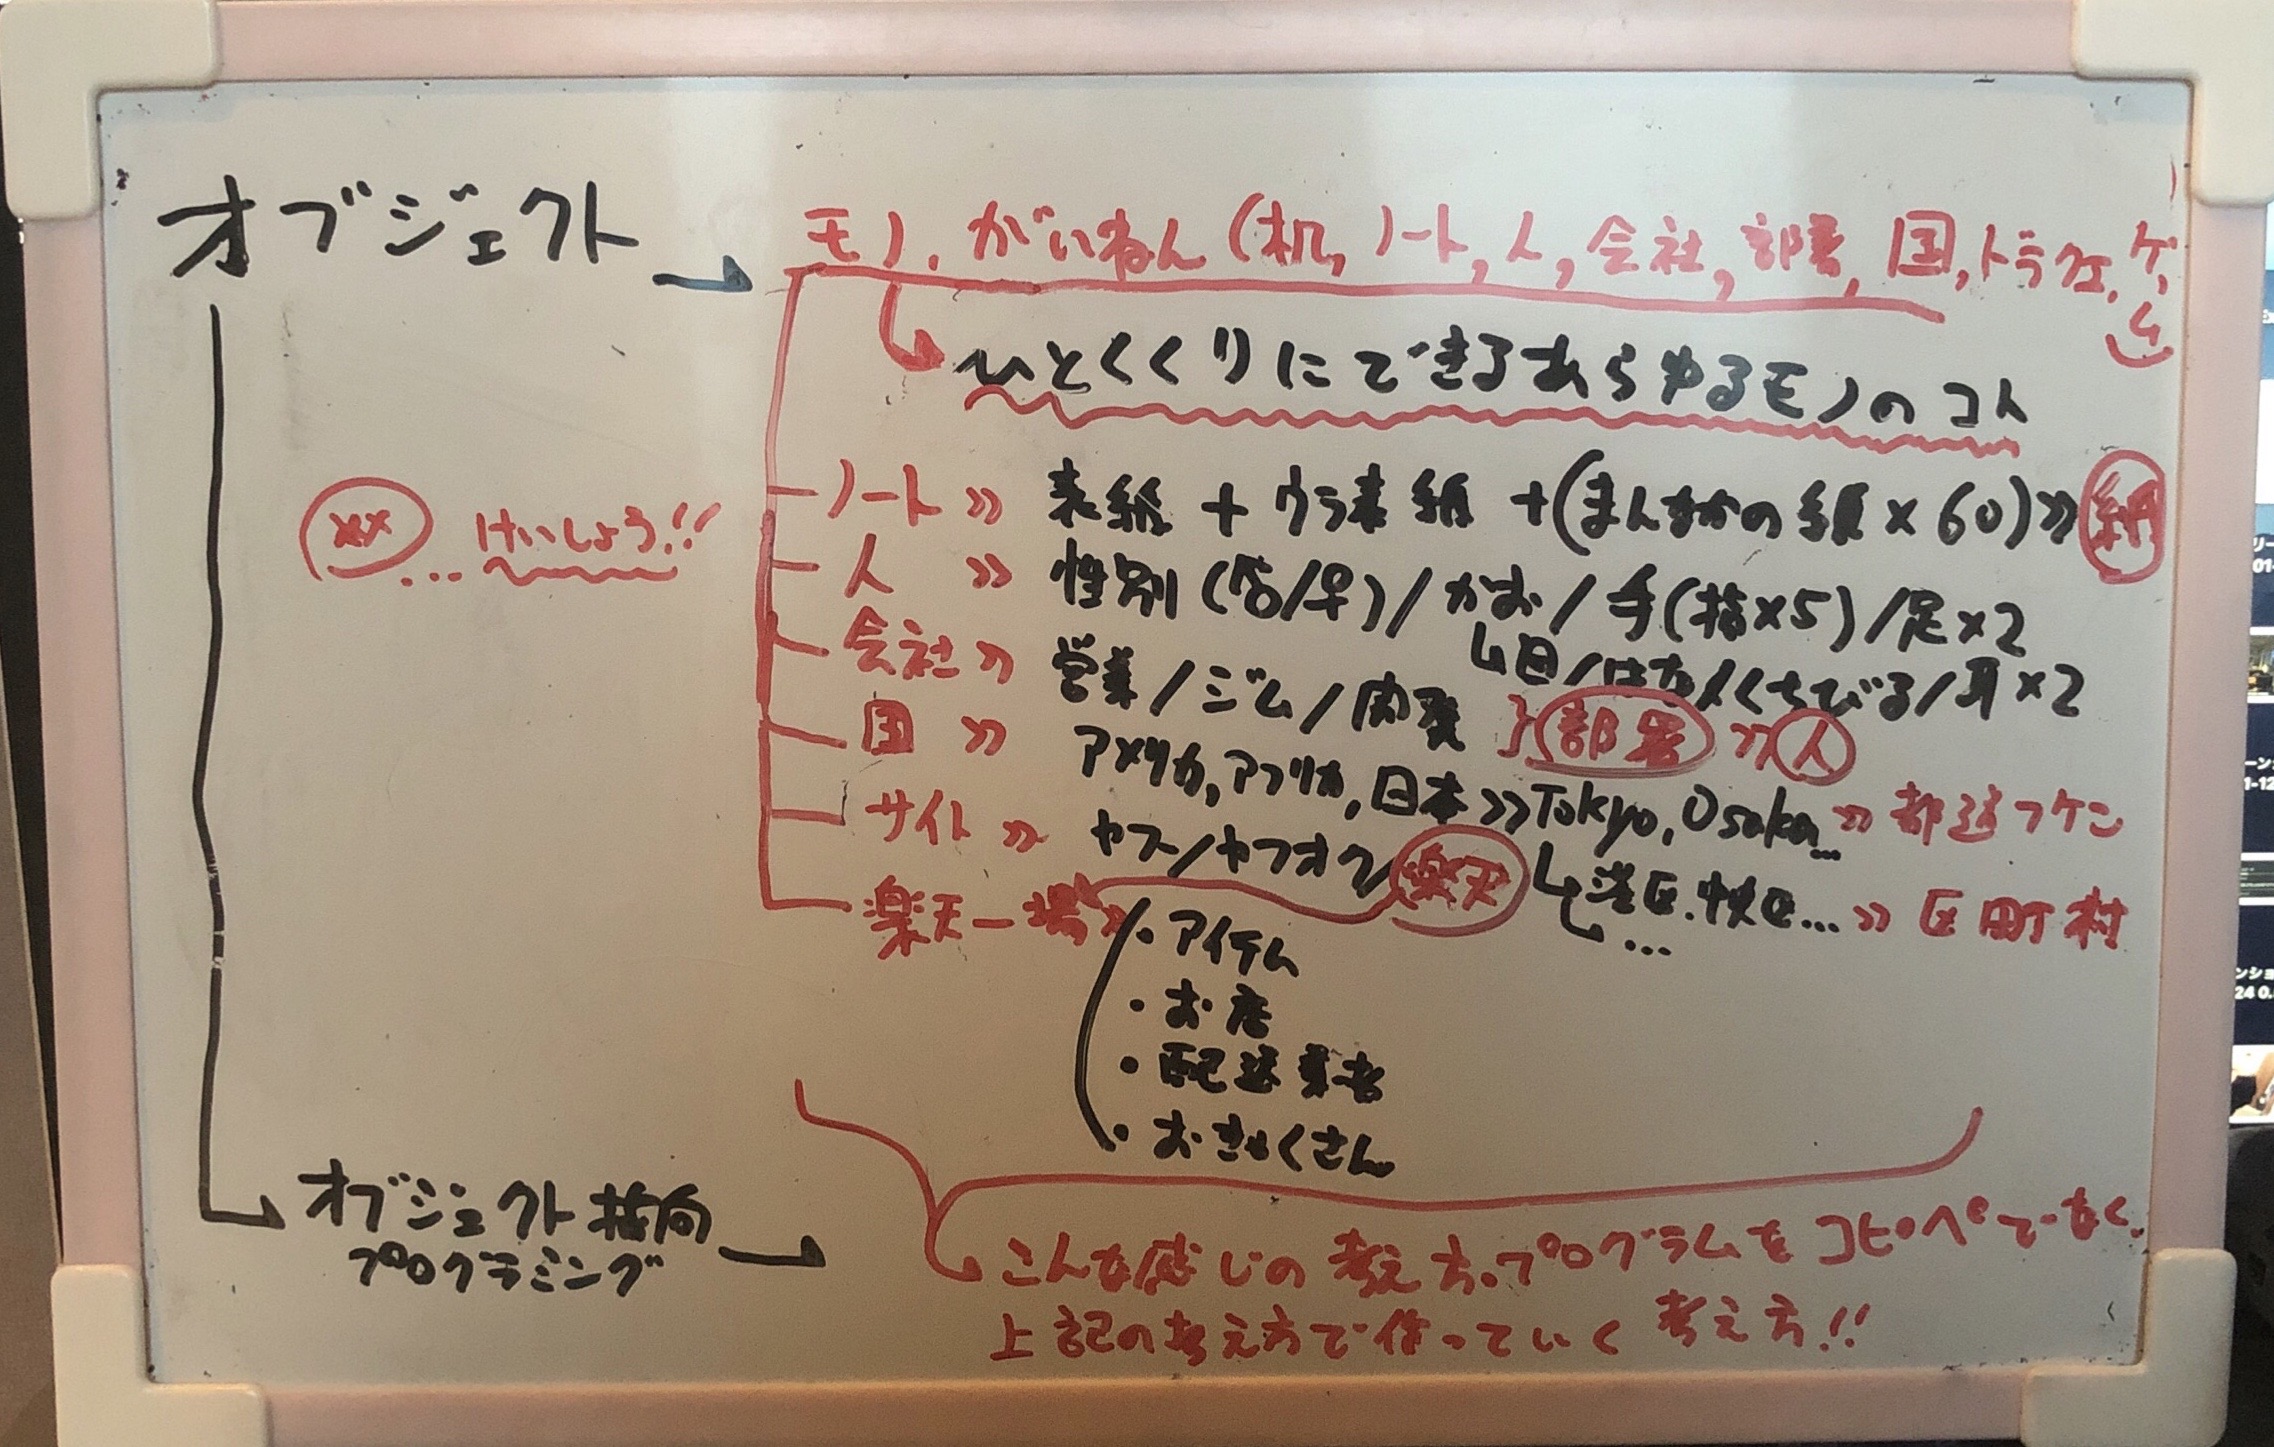 オブジェクト
モノ、がいねん (机, ノート, 人, 会社, 部署, 国, ドラクエ, ゲーム)
ひとくくりにできるあらゆるモノのコト
ノート >> 表紙 + ウラ表紙 + (まんなかの紙 × 60) >> 紙
×× ... けいしょう!!
人 >> 性別 (♂/♀) / かお / 手 (指×5) / 足×2
目/はな/くちびる/耳×2
会社 >> 営業/ジム/開発 } 部署 >> 人
国 >> アメリカ, アフリカ, 日本 >> Tokyo, Osaka... >> 都道フケン
港区. ... >> 区町村
...
サイト >> ヤフー/ヤフオク/楽天
楽天一場 >>
・アイテム
・お店
・配送業者
・おきゃくさん
オブジェクト指向
プログラミング
こんな感じの考え方。プログラムをコピペでなく、
上記の考え方で作っていく 考え方!!